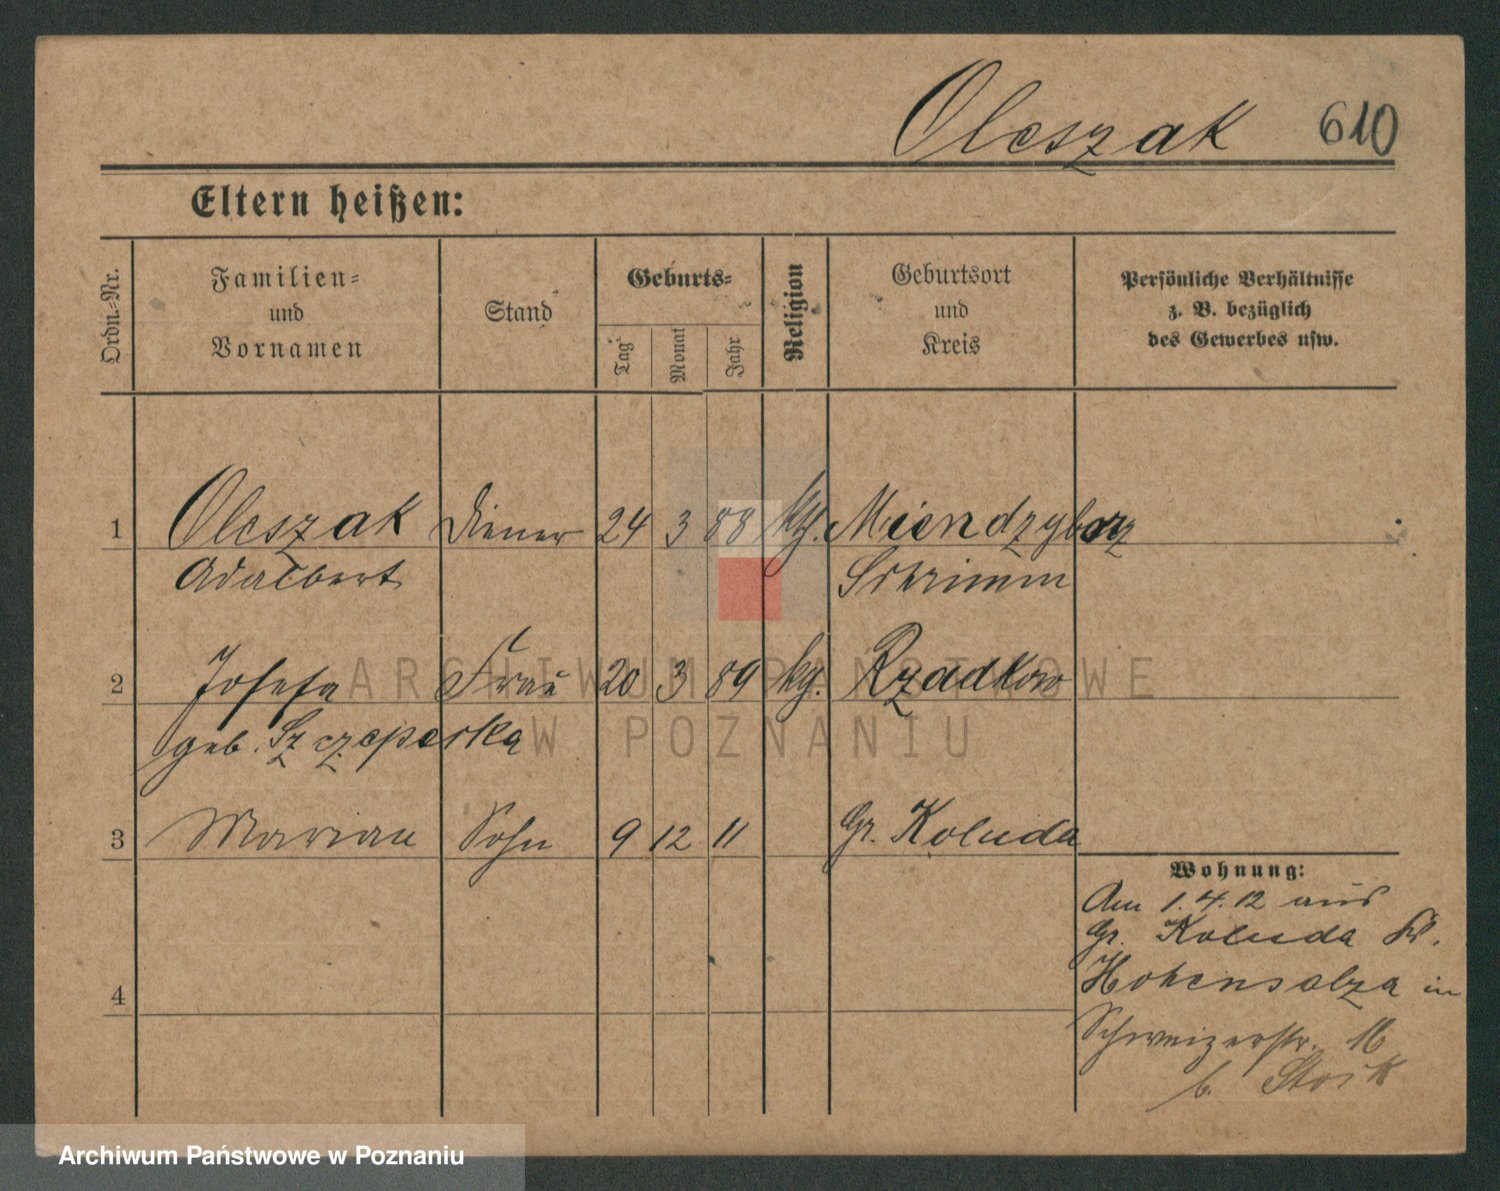 Oleszak 610
Eltern heißen:
Ordn.-Nr.
Familien-
und
Vornamen
Stand
Geburts-
Tag
Monat
Jahr
Religion
Geburtsort
und
Kreis
Persönliche Verhältnisse
z. B. bezüglich
des Gewerbes usw.
1 Oleszak Diener 24 3 88 kg. Miendzyborz
Adalbert Schrimm
2 Josefa Frau 20 3 89 kg. Rzadkow
geb. Szczeperska
3 Marian Sohn 9 12 11 Gr. Koluda
Wohnung:
Am 1.4.12 aus
Gr. Koluda Kr.
Hohensalza in
4
Schweizerstr. 16
b.
ARCHIWUM PAŃSTWOWE
W POZNANIU
Archiwum Państwowe w Poznaniu